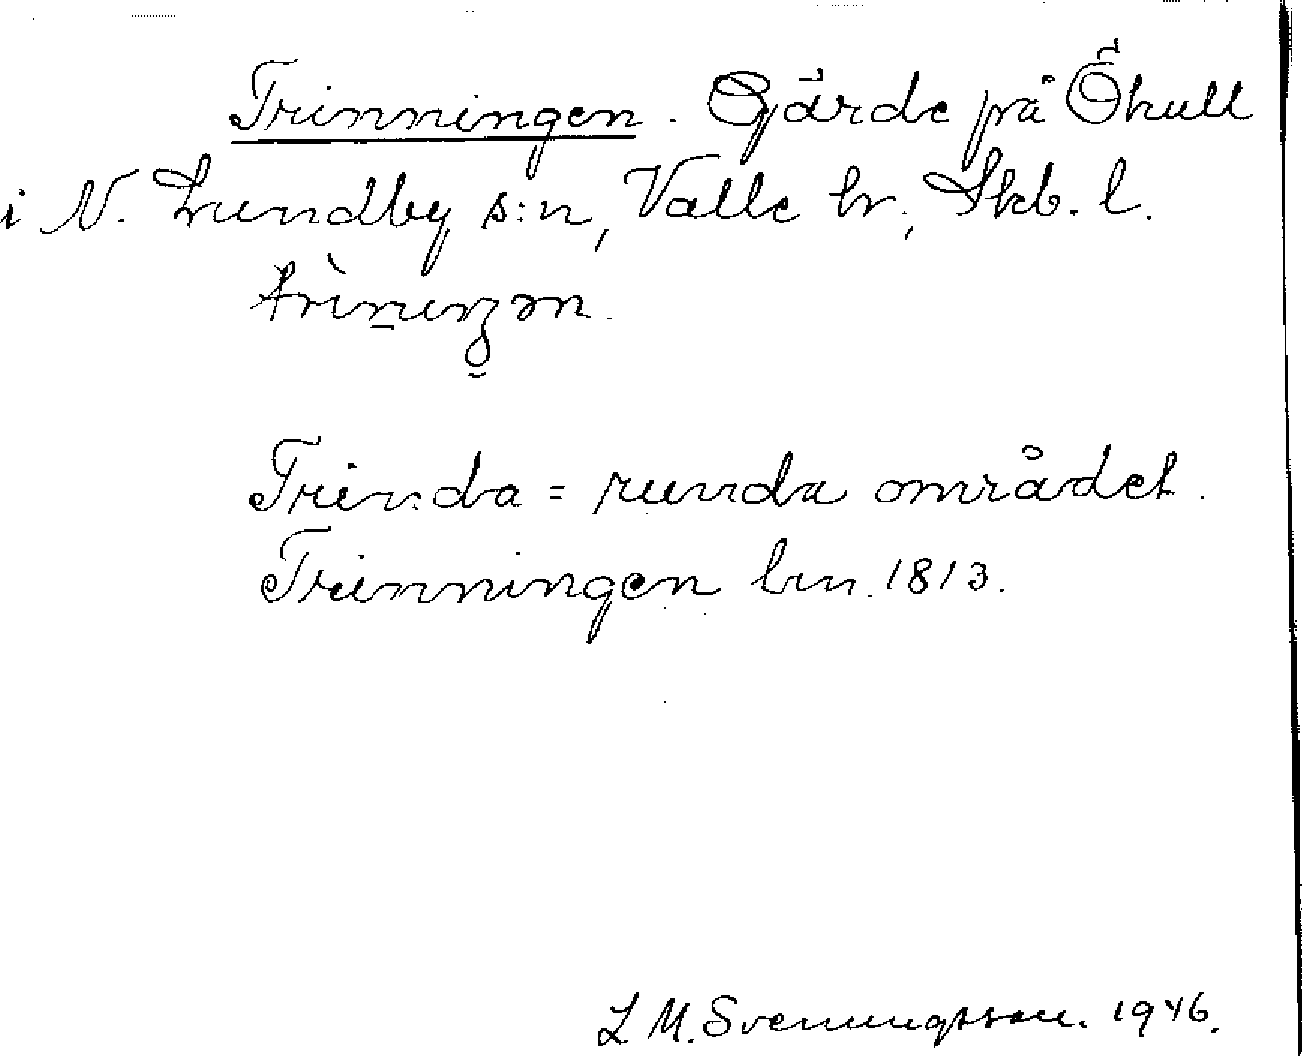 Trinningen. Gärde på Ökull
i N. Lundby s:n, Valle hr, Skb. l.
Trinda = runda området.
Trinningen lm. 1813.
L M. Svenungsson. 1946.